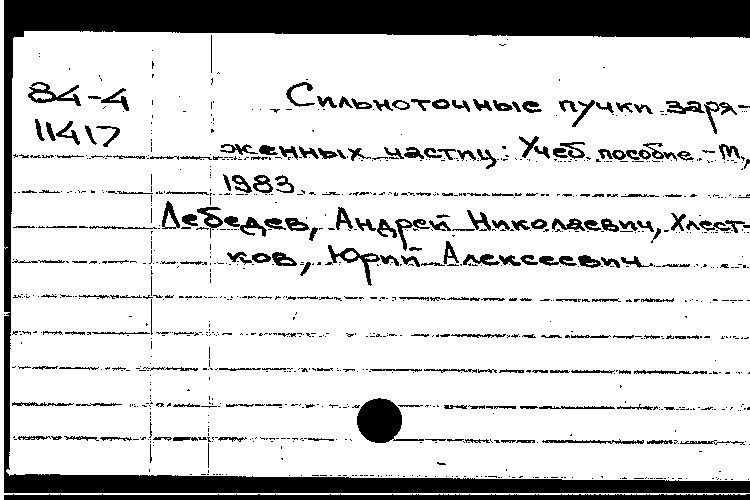 84-4
11417
Сильноточные пучки заря-
женных частиц: Учеб. пособие.-М.,
1983.
Лебедев, Андрей Николаевич, Хлест-
ков, Юрий Алексеевич